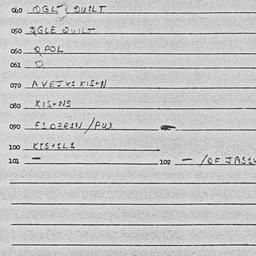 040 QGL QUILT
050 QGLE QUILT
060 Q POL
061 O
070 AVEJX1 KIS+N
080 KIS+NS
090 F1 02R1N / PUX
100 KIS+1L1
101 — 102 — / OF JAS1